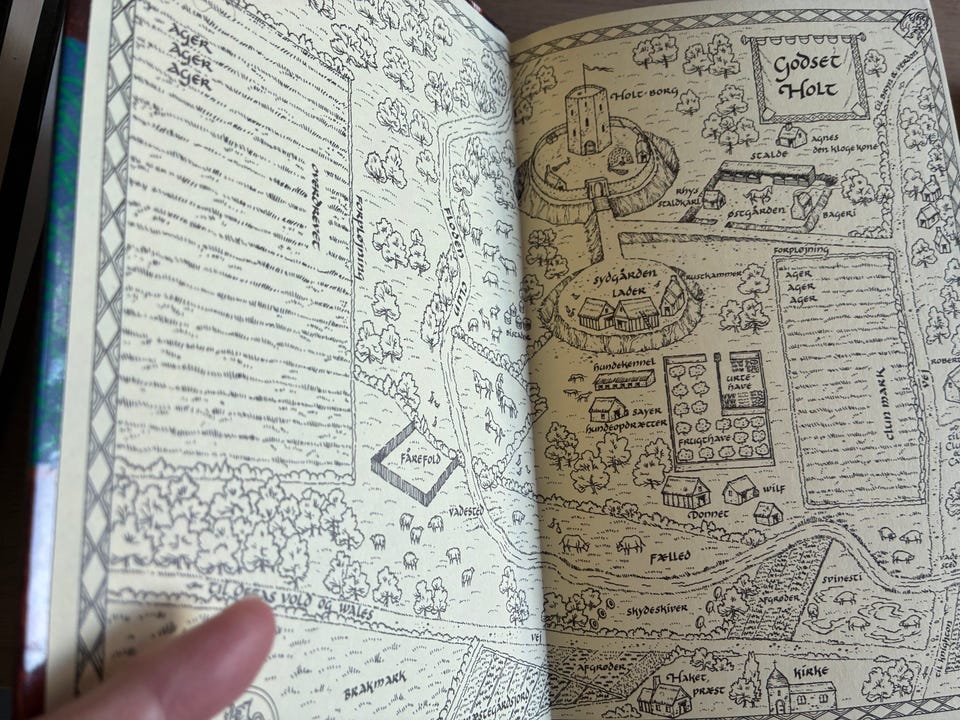 AGER
AGER
AGER
FORPLØJNING
FLODEN CLUN
FÅREFOLD
VADESTED
TIL OFFAS VOLD OG WALES
VEJ
BRAKMARK
Godset
Holt
HOLT-BORG
AGNES
DEN KLOGE KONE
STALDE
RHYS
STALDKARL
ØSTGÅRDEN
BAGERI
SYDGÅRDEN
LADER
RUSTKAMMER
FORPLØJNING
AGER
AGER
AGER
CLUN MARK
VEJ
HUNDEKENNEL
SAYER
HUNDEOPDRÆTTER
URTE-
HAVE
FRUGTHAVE
WILF
DONNET
FÆLLED
SKYDESKIVER
AFGRØDER
SVINESTI
AFGRØDER
HAKET,
PRÆST
KIRKE